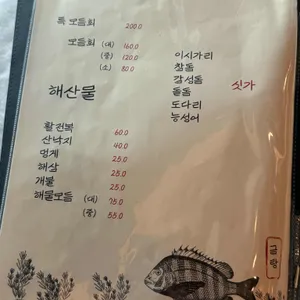 특 모듬회 200.0
모듬회 (대) 160.0
(중) 120.0
(소) 80.0
이시가리
참돔
감성돔
돌돔
도다리
능성어
싯가
해산물
활전복 60.0
산낙지 40.0
멍게 25.0
해삼 25.0
개불 25.0
해물모듬 (대) 75.0
(중) 55.0